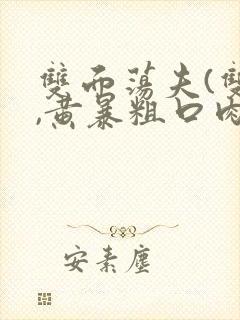 雙面蕩夫(雙
,黃暴粗口肉
安素塵